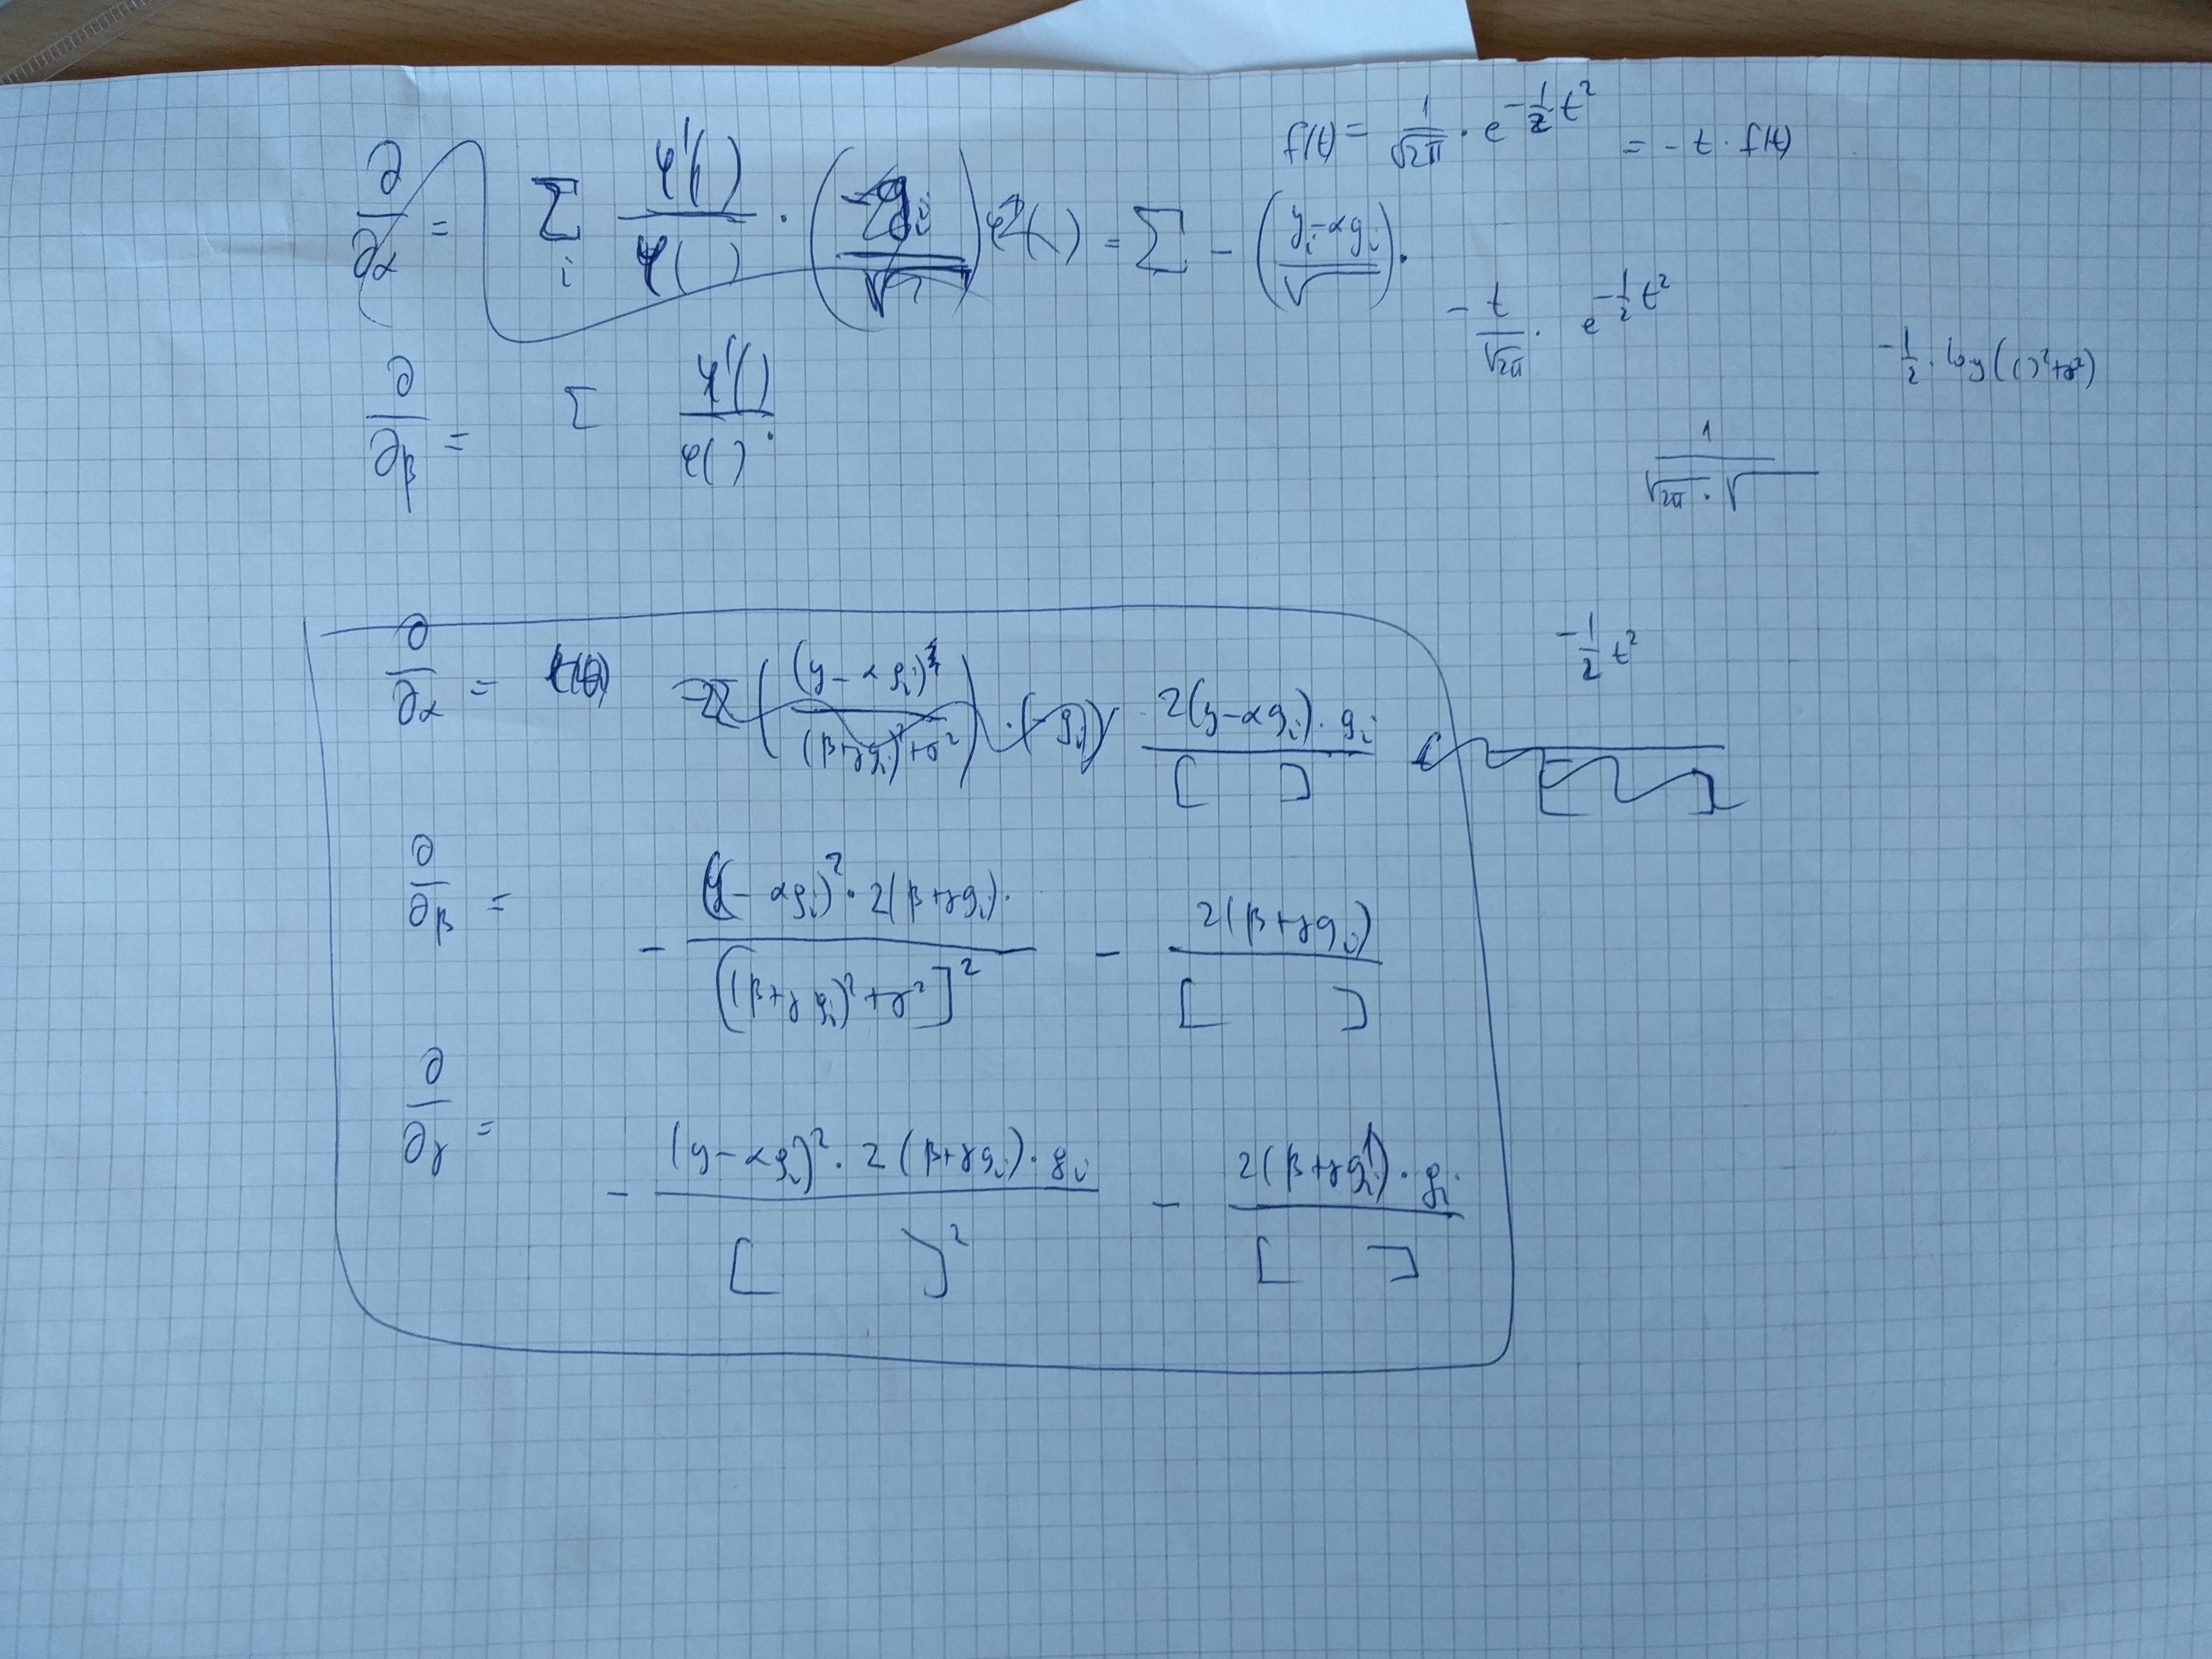 f(t) = 1/√2π · e^(-1/2 t²) = - t · f(t)
∂/∂α = Σ_i φ'( )/φ( ) · (-g_i/√ ) φ( ) = Σ - ((y_i - αg_i)/√ ) ·
- t/√2π · e^(-1/2 t²)
- 1/2 · log(( )² + σ²)
∂/∂β = Σ φ'( )/φ( ) ·
1/(√2π · √ )
- 1/2 t²
∂/∂α = ((y - αg_i)/((β+γg_i)² + σ²)) · (-g_i) 2(y - αg_i) · g_i/[ ]
∂/∂β = - (y - αg_i)² · 2(β+γg_i) ·/[(β+γg_i)² + σ²]² - 2(β+γg_i)/[ ]
∂/∂γ = - (y - αg_i)² · 2(β+γg_i) · g_i/[ ]² - 2(β+γg_i) · g_i/[ ]